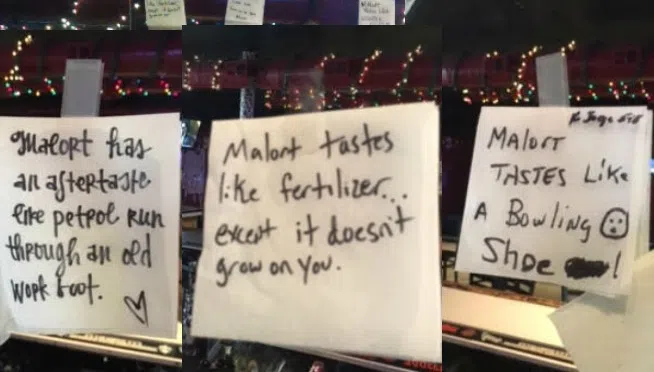 Malort has
an aftertaste
like petrol run
through an old
work boot.
Malort tastes
like fertilizer...
except it doesn't
grow on you.
Malort
TASTES Like
A Bowling
Shoe !